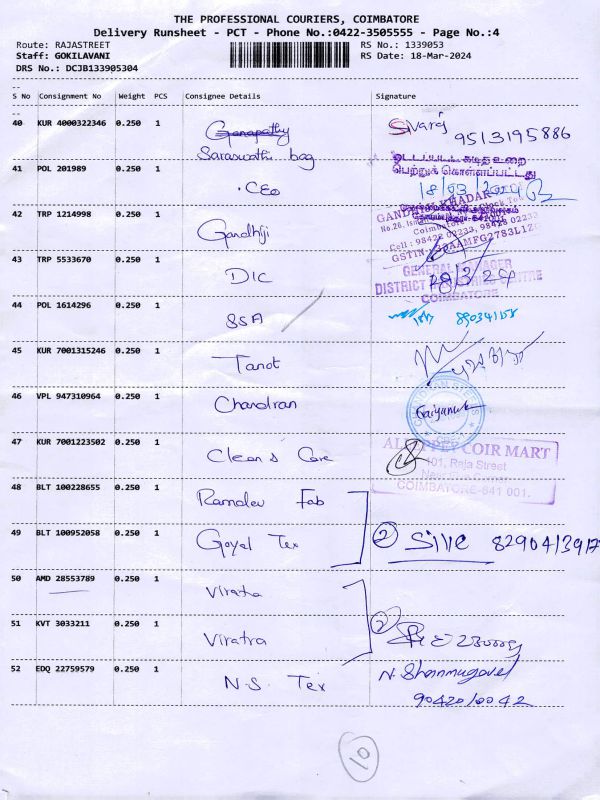 THE PROFESSIONAL COURIERS, COIMBATORE
Delivery Runsheet - PCT - Phone No.:0422-3505555 - Page No.:4
Route: RAJASTREET RS No.: 1339053
Staff: GOKILAVANI RS Date: 18-Mar-2024
DRS No.: DCJB133905304
S No Consignment No Weight PCS Consignee Details Signature
40 KUR 4000322346 0.250 1 Ganapathy Sivaraj 9513195886
Saraswathi bag
41 POL 201989 0.250 1 CEO
பெற்றுக் கொள்ளப்பட்டது
18/03/2024
42 TRP 1214998 0.250 1 Gandhiji
Coimbatore
Cell: 98422 02233, 98422
43 TRP 5533670 0.250 1 DIC
GENERAL MANAGER
DISTRICT CENTRE
COIMBATORE
44 POL 1614296 0.250 1 SSA
45 KUR 7001315246 0.250 1 Tanot
46 VPL 947310964 0.250 1 Chandran
47 KUR 7001223502 0.250 1 Clean & Care
COIR MART
101, Raja Street
COIMBATORE-641 001.
48 BLT 100228655 0.250 1 Ramdev Fab
49 BLT 100952058 0.250 1 Goyal Tex 2
50 AMD 28553789 0.250 1 Viratra
51 KVT 3033211 0.250 1 Viratra 2
52 EDQ 22759579 0.250 1 N.S. Tex N. Shanmugavel
9042010042
10